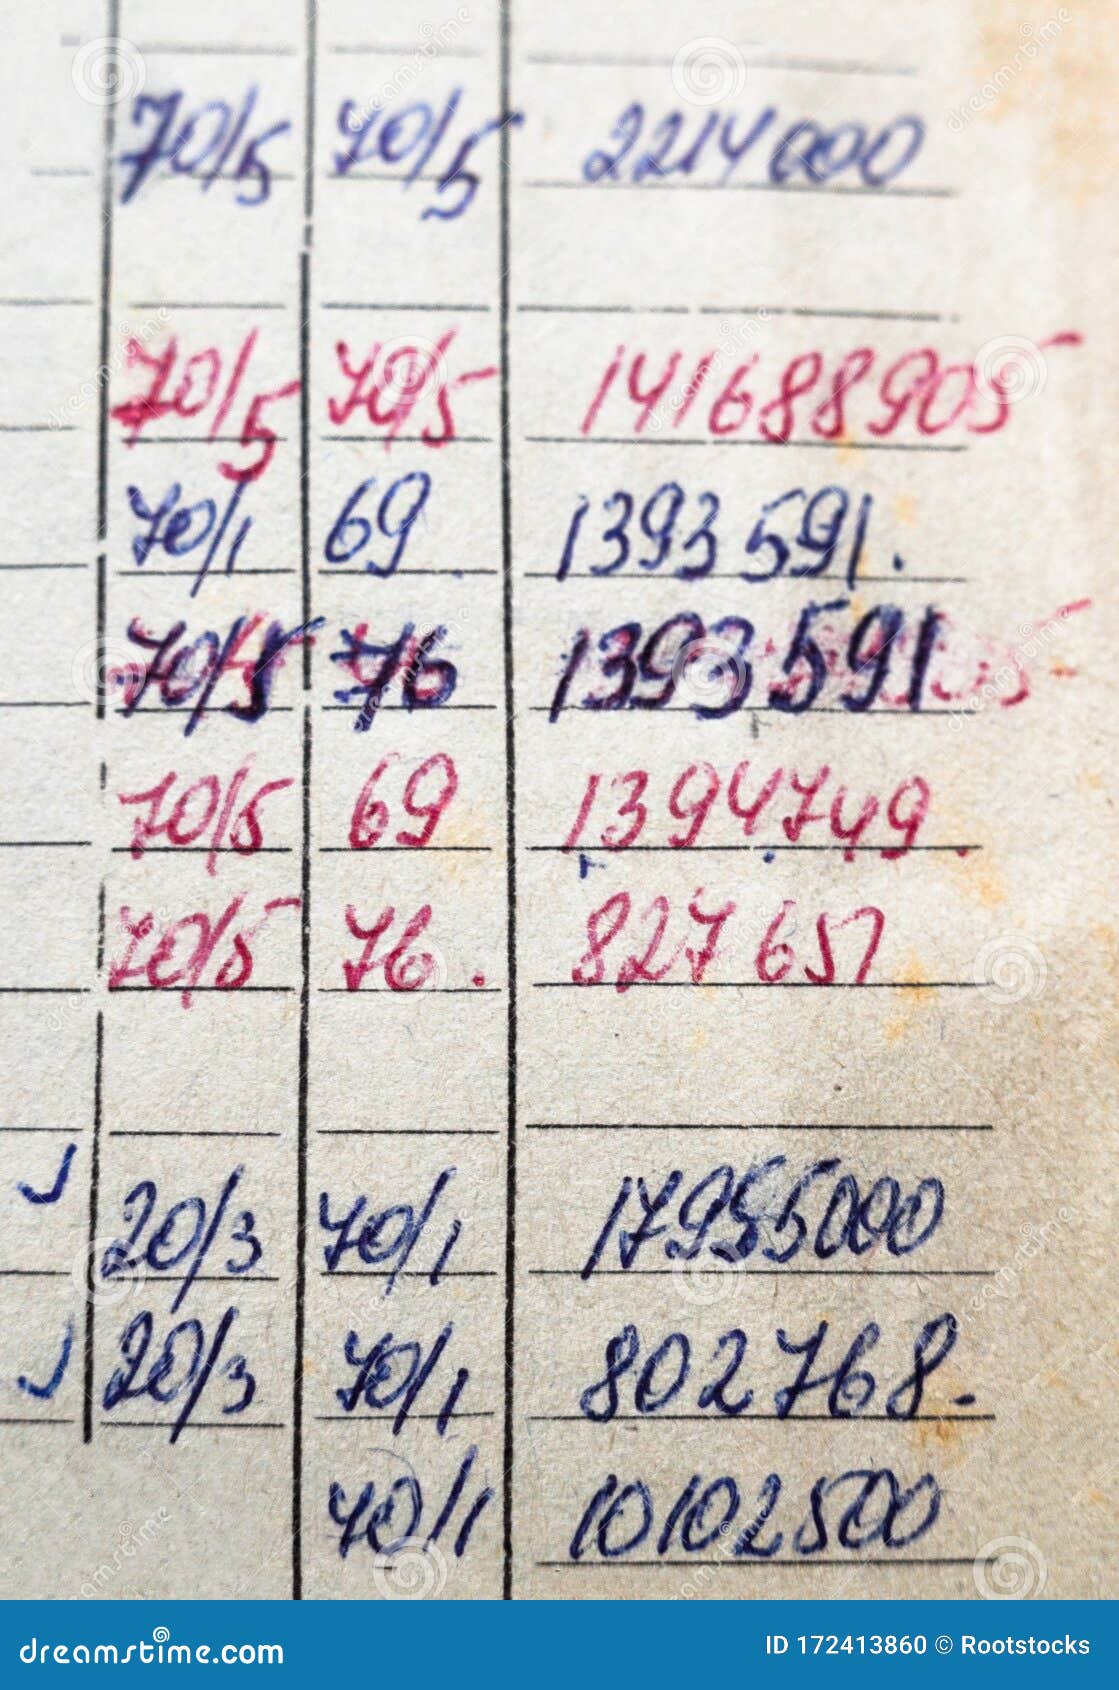 70/5 70/5 2214000
70/5 70/5 141688905
70/1 69 1393591.
70/5 76 1393591
70/5 69 1394749.
70/5 76. 827651
20/3 70/1 17955000
20/3 70/1 802768.
70/1 10102500
dreamstime.com ID 172413860 © Rootstocks